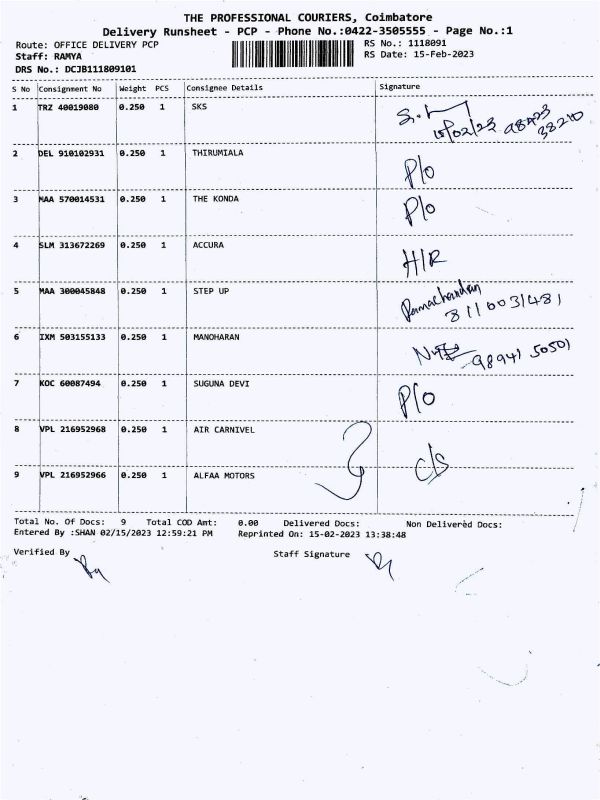 THE PROFESSIONAL COURIERS, Coimbatore
Delivery Runsheet - PCP - Phone No.:0422-3505555 - Page No.:1
Route: OFFICE DELIVERY PCP RS No.: 1118091
Staff: RAMYA RS Date: 15-Feb-2023
DRS No.: DCJB111809101
S No Consignment No Weight PCS Consignee Details Signature
1 TRZ 40019080 0.250 1 SKS
15/02/23 98423
38210
2 DEL 910102931 0.250 1 THIRUMIALA P/O
3 MAA 570014531 0.250 1 THE KONDA P/O
4 SLM 313672269 0.250 1 ACCURA H/R
5 MAA 300045848 0.250 1 STEP UP Ramachandran
8110031481
6 IXM 503155133 0.250 1 MANOHARAN 98941 50501
7 KOC 60087494 0.250 1 SUGUNA DEVI P/O
8 VPL 216952968 0.250 1 AIR CARNIVEL
C/S
9 VPL 216952966 0.250 1 ALFAA MOTORS
Total No. Of Docs: 9 Total COD Amt: 0.00 Delivered Docs: Non Delivered Docs:
Entered By :SHAN 02/15/2023 12:59:21 PM Reprinted On: 15-02-2023 13:38:48
Verified By Staff Signature